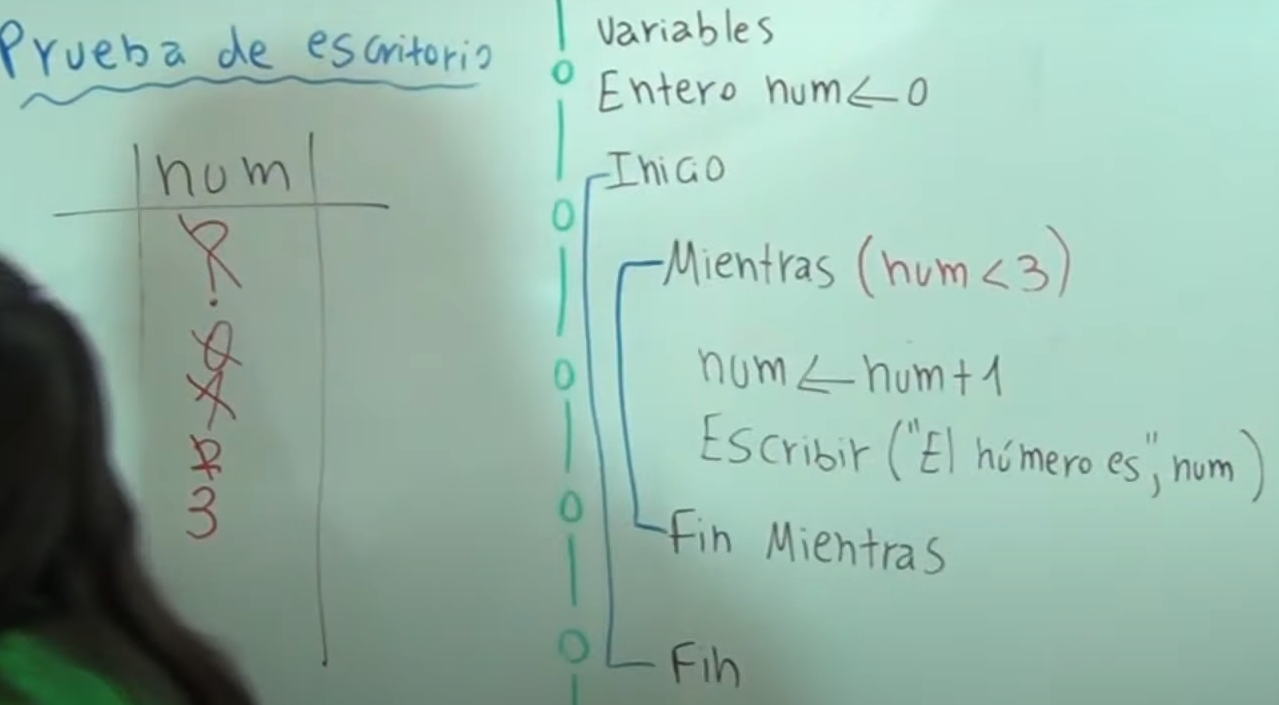 Prueba de escritorio
num
?
0
1
2
3
Variables
Entero num ← 0
Inicio
Mientras (num < 3)
num ← num + 1
Escribir ("El número es", num)
Fin Mientras
Fin